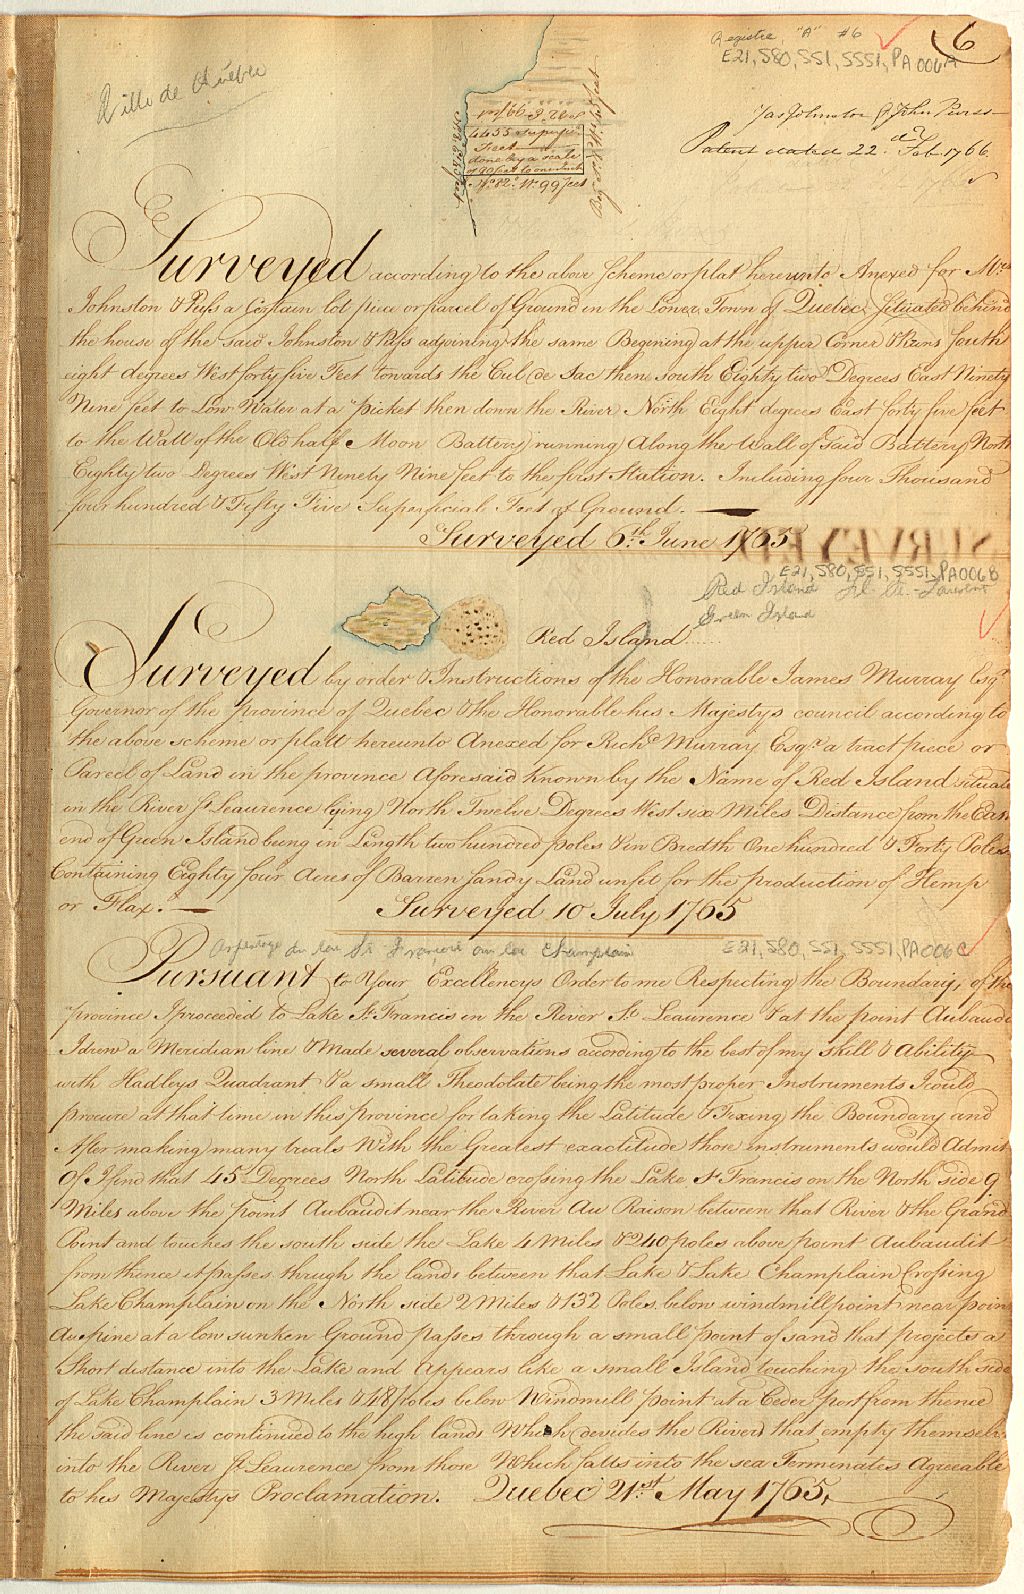 Registre "A" #6
6
E21, S80, SS1, SSS1, PA006A
Ville de Québec
Jas Johnston & John Purss
Patent dated 22.d Feb. 1766.
4455 superfic.
Feet
done by a scale
of 90 feet to one Inch
No. 82o. W. 99 feet
Surveyed according to the above scheme or plat hereunto Anexed for Mrs
Johnston & Purss a Certain lot piece or parcel of Ground in the Lower Town of Quebec Situated behind
the house of the said Johnston & Purss adjoining the same Begining at the upper Corner & Runs South
eight degrees West forty five Feet towards the Cul de Sac then South Eighty two Degrees East Ninety
Nine feet to Low Water at a picket then down the River North Eight degrees East forty five feet
to the Wall of the Old half Moon Battery running Along the Wall of said Battery North
Eighty two Degrees West Ninety Nine feet to the first Station. Including four Thousand
four hundred & Fifty Five Superficial Feet of Ground.
Surveyed 6th. June 1765
SURVEYED
E21, S80, SS1, SSS1, PA006B
Red Island fl. St.-Laurent
Green Island
Red Island
Surveyed by order & Instructions of the Honorable James Murray Esqr
Governor of the province of Quebec & the Honorable his Majestys council according to
the above scheme or platt hereunto Anexed for Richd Murray Esqr. a tract piece or
Parcel of Land in the province Aforesaid Known by the Name of Red Island situate
in the River St Leaurence lying North Twelve Degrees West six Miles Distance from the East
end of Green Island being in Length two hundred poles & in Bredth One hundred & Forty Poles
Containing Eighty four Acres of Barren sandy Land unfit for the production of Hemp
or Flax.
Surveyed 10 July 1765
Arpentage du lac St François au lac Champlain
E21, S80, SS1, SSS1, PA006C
Pursuant to Your Excellencys Order to me Respecting the Boundary, of the
province I proceeded to Lake St Francis in the River St Leaurence & at the point Aubaudit
I drew a Meridian line & Made several observations according to the best of my skill & Ability
with Hadleys Quadrant & a small Theodolate being the most proper Instruments I could
procure at that time in this province for taking the Latitude & Fixing the Boundary and
After making many trials With the Greatest exactitude those instruments would Admit
Of I find that 45 Degrees North Latitude crossing the Lake St Francis on the North side 9
Miles above the point Aubaudit near the River Au Raison between that River & the Grand
Point and touches the south side the Lake 4 Miles & 240 poles above point Aubaudit
from thence it passes through the lands between that Lake & Lake Champlain Crossing
Lake Champlain on the North side 2 Miles & 132 Poles below windmill point near point
Au pine at a low sunken Ground passes through a small point of sand that projects a
Short distance into the Lake and Appears like a small Island touching the south side
of Lake Champlain 3 Miles & 48 poles below Windmill point at a Ceder post from thence
the said line is continued to the high lands Which devides the Rivers that empty themselv
into the River St Leaurence from those Which falls into the sea Terminates Agreeable
to his Majestys Proclamation. Quebec 21st May 1765,